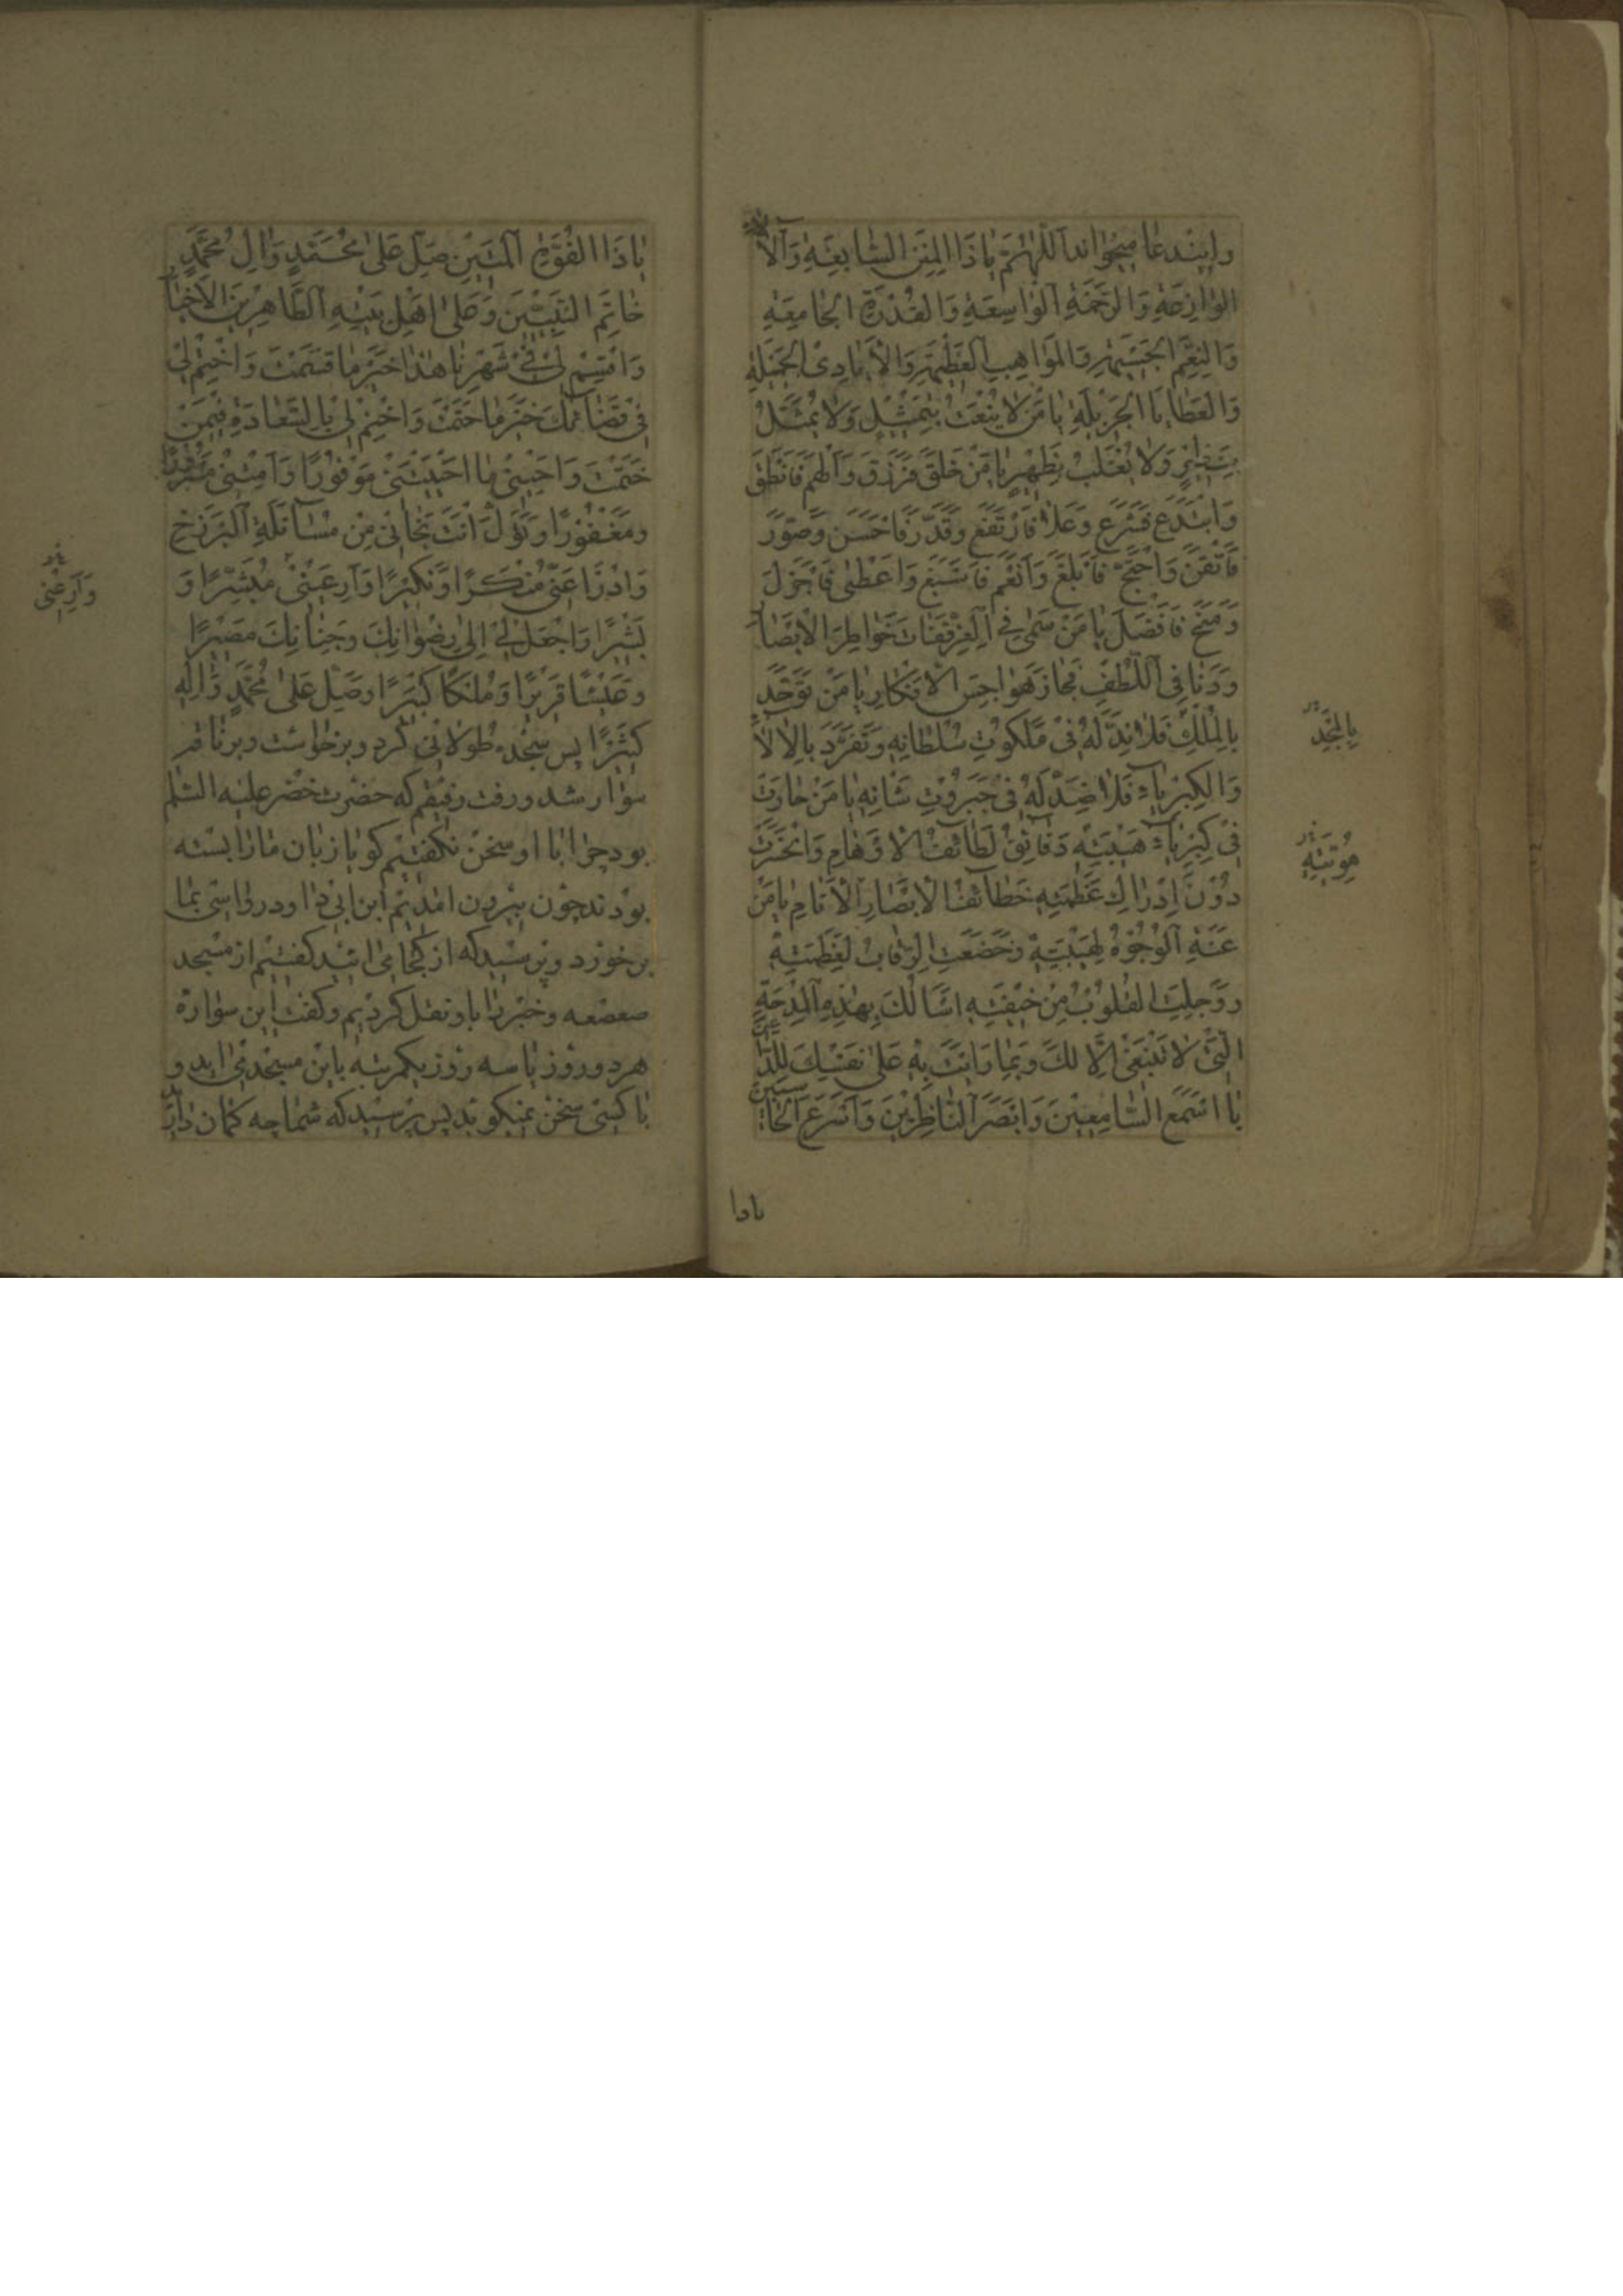 واین دعا میخواند اَللّٰهُمَّ یٰا ذَا الْمِنَنِ السّٰابِغَةِ وَالْآلٰاءِ
الْوٰازِعَةِ وَالرَّحْمَةِ الْوٰاسِعَةِ وَالْقُدْرَةِ الْجٰامِعَةِ
وَالنِّعَمِ الْجَسیمَةِ وَالْمَوٰاهِبِ الْعَظیمَةِ وَالْاَیٰادِی الْجَمیلَةِ
وَالْعَطٰایَا الْجَزیلَةِ یٰا مَنْ لٰا یُنْعَتُ بِتَمْثیلٍ وَلٰا یُمَثَّلُ
بِنَظیرٍ وَلٰا یُغْلَبُ بِظَهیرٍ یٰا مَنْ خَلَقَ فَرَزَقَ وَاَلْهَمَ فَاَنْطَقَ
وَابْتَدَعَ فَشَرَعَ وَعَلٰا فَارْتَفَعَ وَقَدَّرَ فَاَحْسَنَ وَصَوَّرَ
فَاَتْقَنَ وَاحْتَجَّ فَاَبْلَغَ وَاَنْعَمَ فَاَسْبَغَ وَاَعْطٰی فَاَجْزَلَ
وَمَنَحَ فَاَفْضَلَ یٰا مَنْ سَمٰی فِی الْعِزِّ فَفٰاتَ خَوٰاطِرَ الْاَبْصٰارِ
وَدَنٰا فِی اللُّطْفِ فَجٰازَ هَوٰاجِسَ الْاَفْکٰارِ یٰا مَنْ تَوَحَّدَ
بِالْمُلْکِ فَلٰا نِدَّ لَهُ فی مَلَکُوتِ سُلْطٰانِهِ وَتَفَرَّدَ بِالْآلٰاءِ
وَالْکِبْرِیٰاءِ فَلٰا ضِدَّ لَهُ فی جَبَرُوتِ شَانِهِ یٰا مَنْ حٰارَتْ
فی کِبْرِیٰاءِ هَیْبَتِهِ دَقٰائِقُ لَطٰائِفِ الْاَوْهٰامِ وَانْحَسَرَتْ
دُونَ اِدْرٰاکِ عَظَمَتِهِ خَطٰائِفُ اَبْصٰارِ الْاَنٰامِ یٰا مَنْ
عَنَتِ الْوُجُوهُ لِهَیْبَتِهِ وَخَضَعَتِ الرِّقٰابُ لِعَظَمَتِهِ
وَوَجِلَتِ الْقُلُوبُ مِنْ خیفَتِهِ اَسْاَلُکَ بِهٰذِهِ الْمِدْحَةِ
الَّتی لٰا تَنْبَغی اِلّٰا لَکَ وَبِمٰا وَاَیْتَ بِهِ عَلٰی نَفْسِکَ لِلدّٰاعینَ
یٰا اَسْمَعَ السّٰامِعینَ وَاَبْصَرَ النّٰاظِرینَ وَاَسْرَعَ الْحٰاسِبینَ
بِالْمَجْدِ
یاذا
یٰا ذَا الْقُوَّةِ الْمَتینِ صَلِّ عَلٰی مُحَمَّدٍ وَاٰلِ مُحَمَّدٍ
خٰاتَمِ النَّبِیّینَ وَعَلٰی اَهْلِ بَیْتِهِ الطّٰاهِرینَ الْاَخْیٰارِ
وَاقْسِمْ لی فی شَهْرِنٰا هٰذٰا خَیْرَ مٰا قَسَمْتَ وَاخْتِمْ لی
فی قَضٰائِکَ خَیْرَ مٰا حَتَمْتَ وَاخْتِمْ لی بِالسَّعٰادَةِ فیمَنْ
خَتَمْتَ وَاَحْیِنی مٰا اَحْیَیْتَنی مَوْفُورًا وَاَمِتْنی مَسْرُورًا
وَمَغْفُورًا وَتَوَلَّ اَنْتَ نَجٰاتی مِنْ مُسٰآئَلَةِ الْبَرْزَخِ
وَادْرَا عَنّی مُنْکَرًا وَنَکیرًا وَاَرِ عَیْنی مُبَشِّرًا وَ
بَشیرًا وَاجْعَلْ لی اِلٰی رِضْوٰانِکَ وَجِنٰانِکَ مَصیرًا
وَعَیْشًا قَریرًا وَمُلْکًا کَبیرًا وَصَلِّ عَلٰی مُحَمَّدٍ وَاٰلِهِ
کَثیرًا پس سجده طولانی کرد و برخواست و برناقه
سوار شد و رفت رفیقم که حضرت خضر علیه السلم
بود چرا با او سخن نگفتیم گویا زبان ما را بسته
بودند چون بیرون امدیم ابن ابی داود رواسی بما
برخورد و پرسید که از کجا می ائید گفتیم از مسجد
صعصعه و خبر را باو نقل کردیم و گفت این سواره
هر دو روز یا سه روز یکمرتبه باین مسجد می اید و
با کسی سخن نمیگوید پس پرسید که شما چه گمان دارید
وَاَرِعْنی